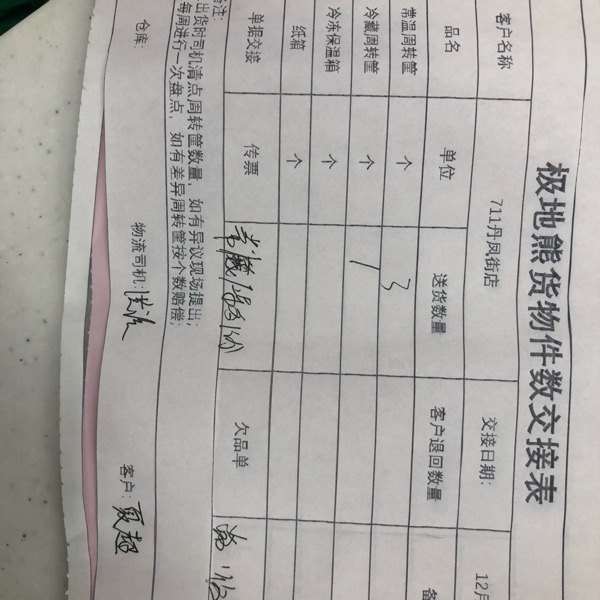 极地熊货物件数交接表
客户名称 711丹凤街店 交接日期: 12月
品名 单位 送货数量 客户退回数量
常温周转筐 个 3
冷藏周转筐 个 1
冷冻保温箱 个
纸箱 个
单据交接 传票 欠品单
备注:
出货时司机清点周转筐数量，如有异议现场提出;
每周进行一次盘点，如有差异周转筐按个数赔偿;
仓库: 物流司机: 客户: 夏超